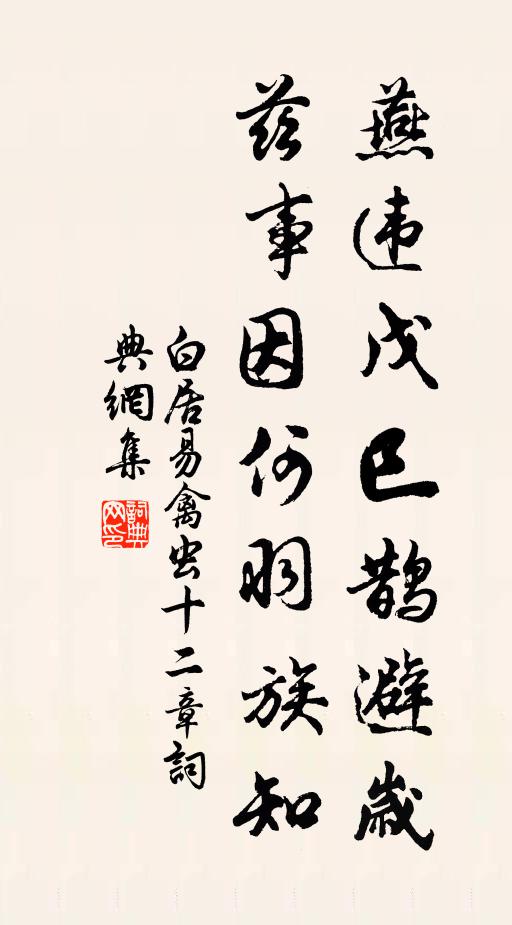 燕违戊巳鹊避歲
茲事因何羽族知
白居易禽虫十二章詞
典網集
詞典网印